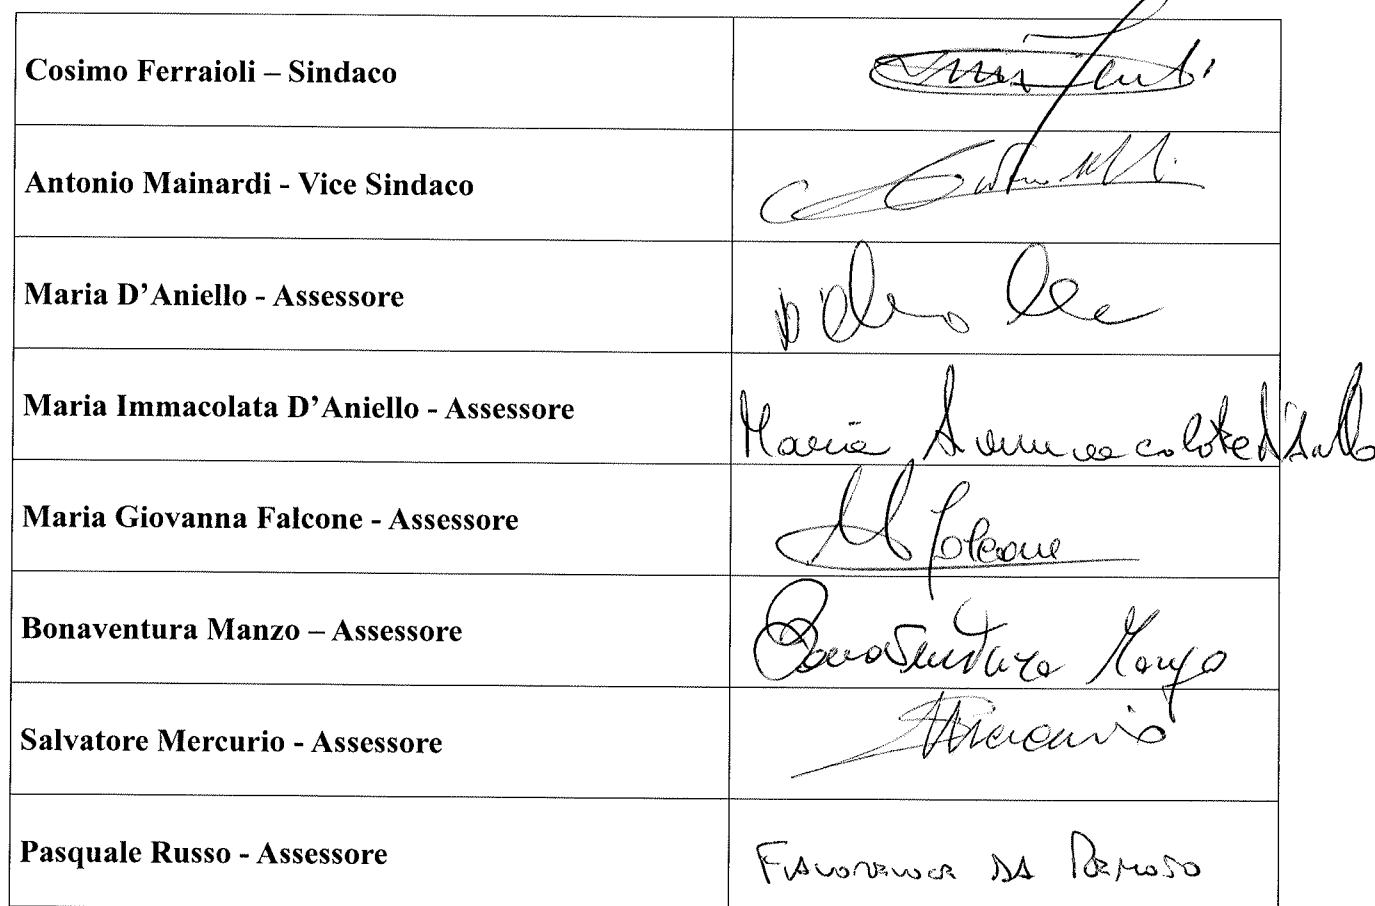 Cosimo Ferraioli – Sindaco
Antonio Mainardi - Vice Sindaco
Maria D’Aniello - Assessore
Maria Immacolata D’Aniello - Assessore
Maria Immacolata D'Aniello
Maria Giovanna Falcone - Assessore
M Falcone
Bonaventura Manzo – Assessore
Bonaventura Manzo
Salvatore Mercurio - Assessore
Mercurio
Pasquale Russo - Assessore
DA REMOTO